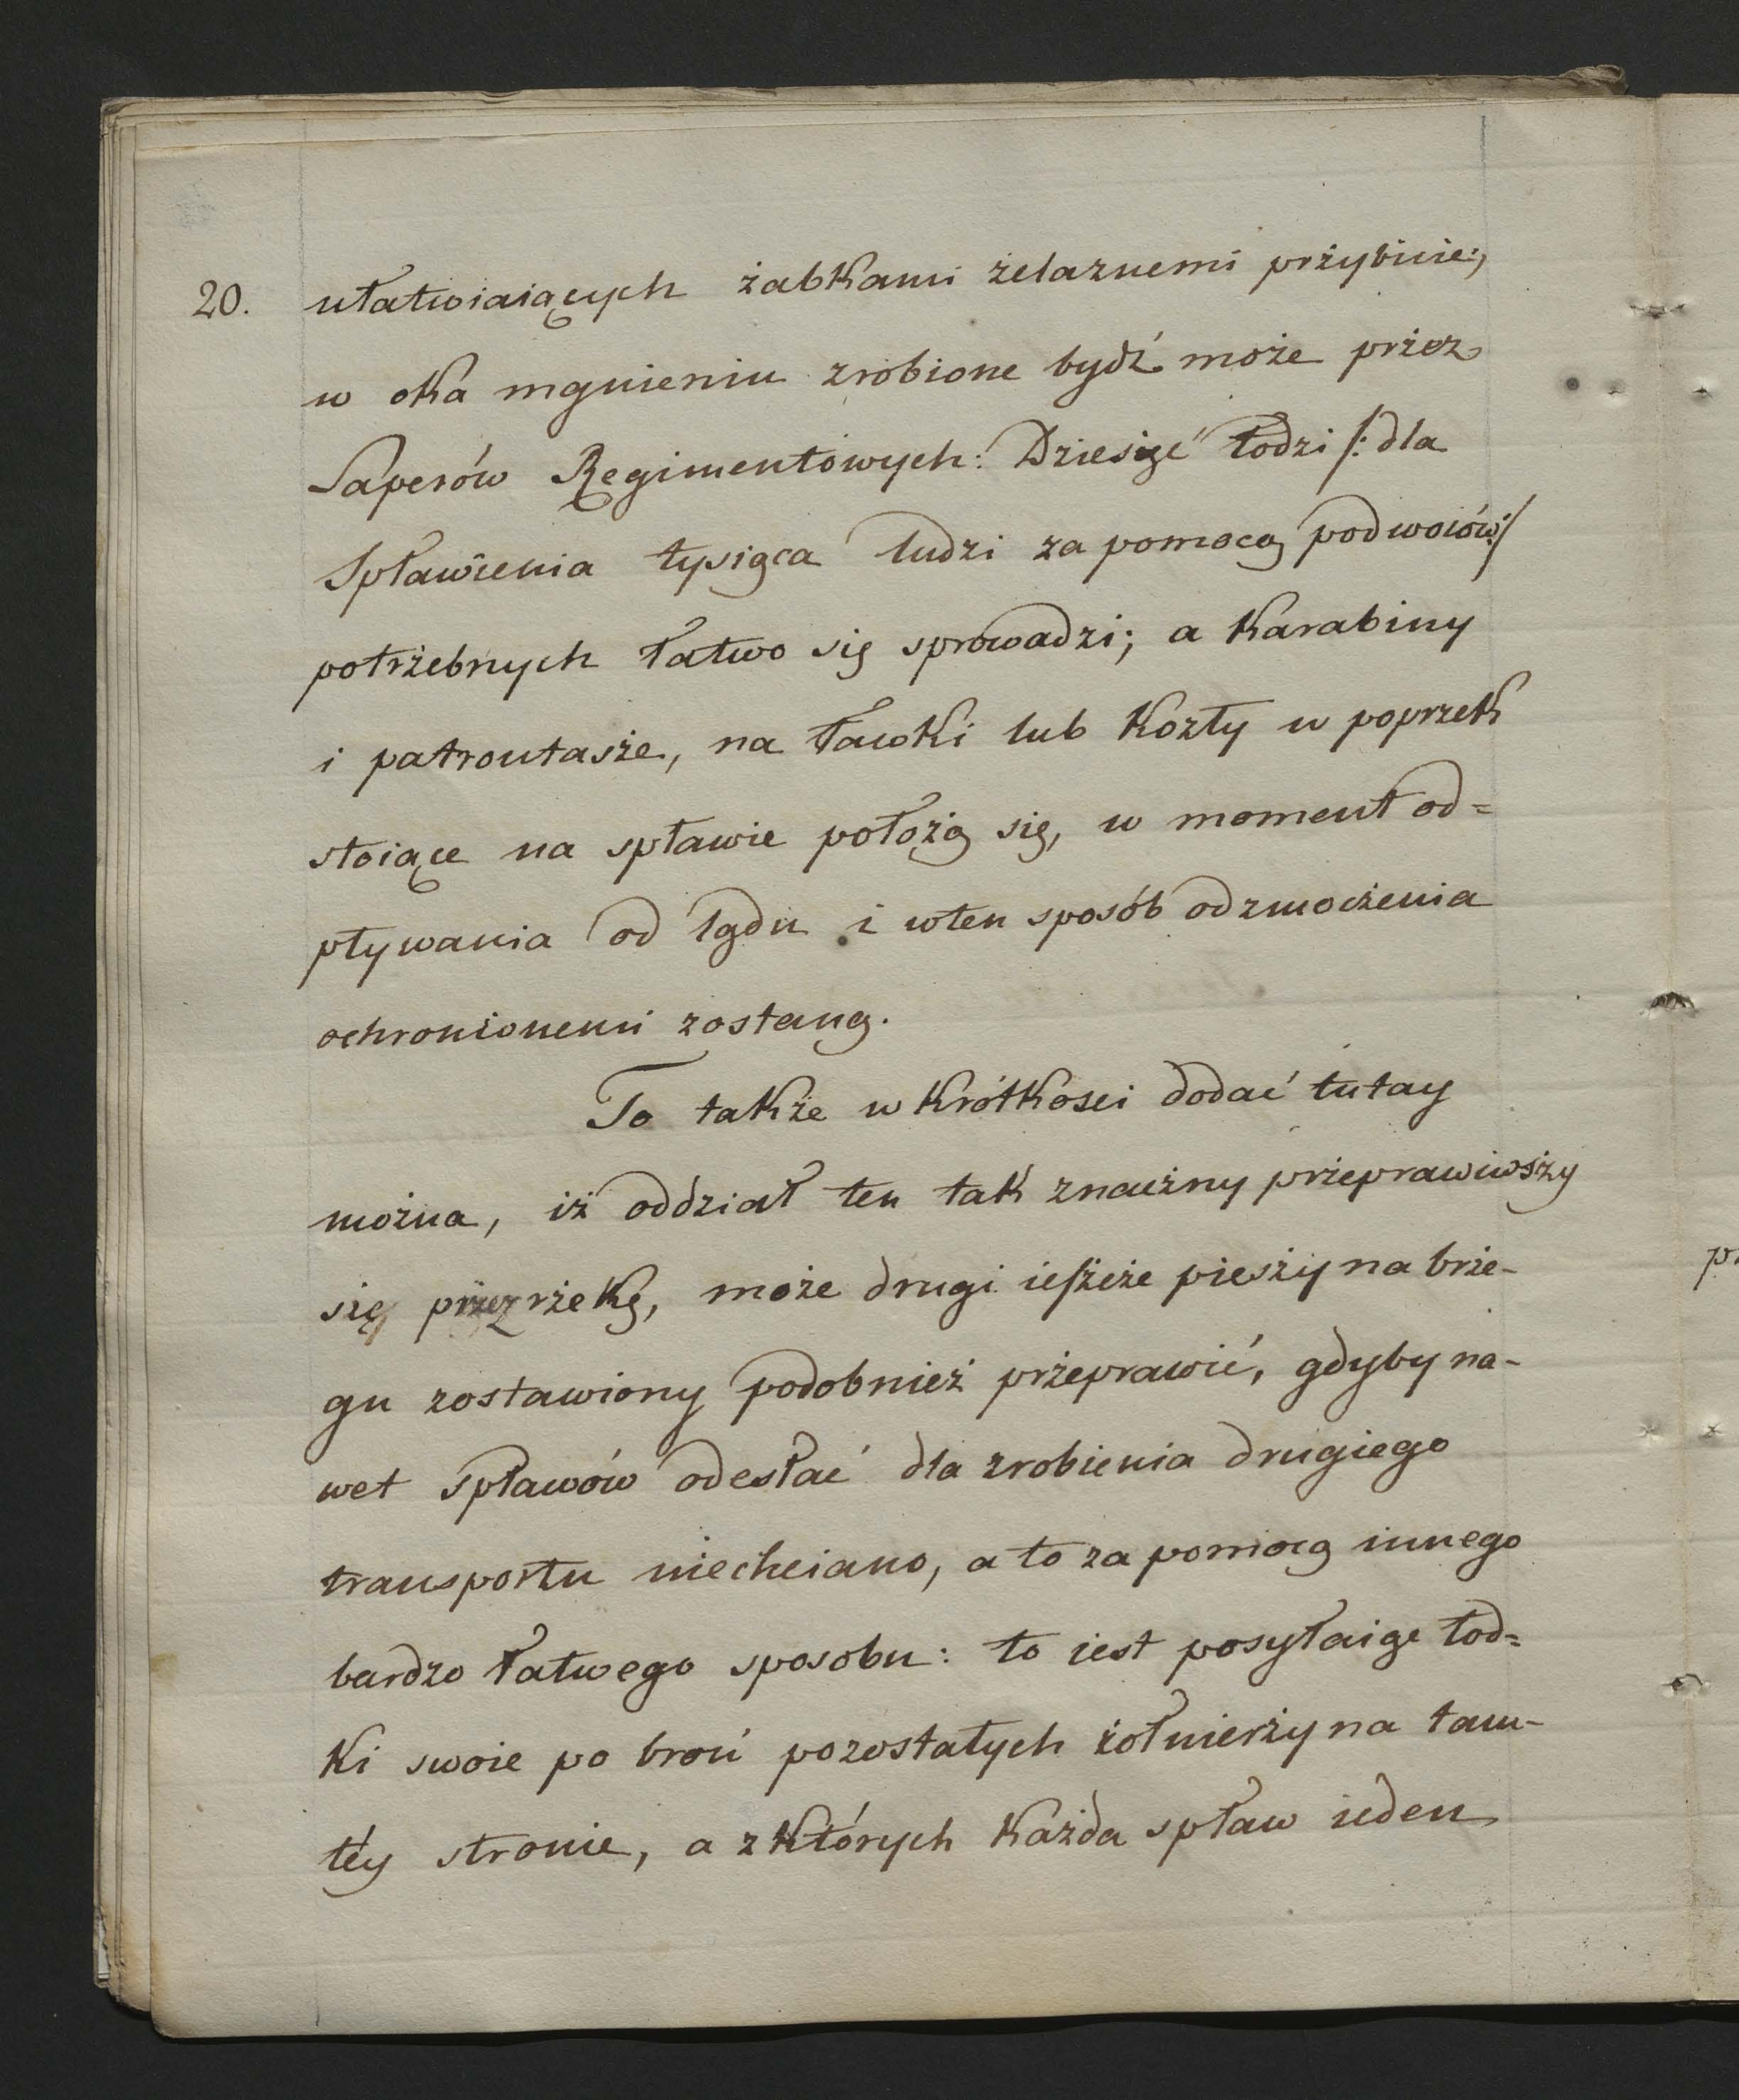 20. ułatwiaiących żabkami żelaznemi prżybicie;
w oka mgnieniu zrobione bydź może prżez
Saperów Regimentowych: Dziesięć łodzi /: dla
Spławienia tysiąca ludzi za pomocą podwoiów:/
potrżebnych łatwo się sprowadzi; a Karabiny
i patrontasże, na ławki lub Kozły w poprzek
stoiące na spławie położą się, w moment od=
pływania od lądu i wten sposób od zmocżenia
ochronionemi zostaną.
To także w krótkosci dodać tutay
można, iż oddział ten tak znacżny prżeprawiwsży
się prżez rżekę, może drugi ieſżcże piesży na brże-
gu zostawiony podobnież prżeprawić, gdyby na-
wet Spławów odesłać dla zrobienia drugiego
transportu niechciano, a to za pomocą innego
bardzo łatwego sposobu: to iest posyłaiąc łod=
ki swoie po broń pozostałych żołnierży na tam-
téy stronie, a z których każda spław ieden